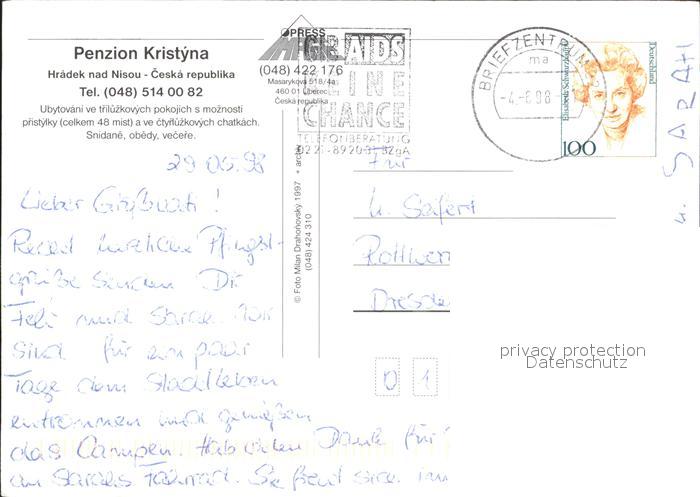 Penzion Kristýna
Hrádek nad Nisou - Česká republika
Tel. (048) 514 00 82
Ubytování ve třílůžkových pokojích s možností
přistýlky (celkem 48 míst) a ve čtyřlůžkových chatkách.
Snídaně, obědy, večeře.
PRESS
(048) 422 176
Masarykova 518/4a
460 01 Liberec
Česká republika
GIB AIDS
EINE
CHANCE
TELEFONBERATUNG
BRIEFZENTRUM
ma
Elisabeth Schwarzhaupt
Deutschland
100
u. SARAH
© Foto Milan Drahoňovský 1997 + archiv
(048) 424 310
29.05.98
Lieber Großvati!
Recht herzliche Pfingst-
grüße senden Dir
Feli und Sarah. Wir
sind für ein paar
Tage dem Stadtleben
entronnen und genießen
das Campen. Hab vielen Dank für
an Sarahs Fahrrad. Sie freut sich
Für
U. Seifert
Dresde
01
privacy protection
Datenschutz